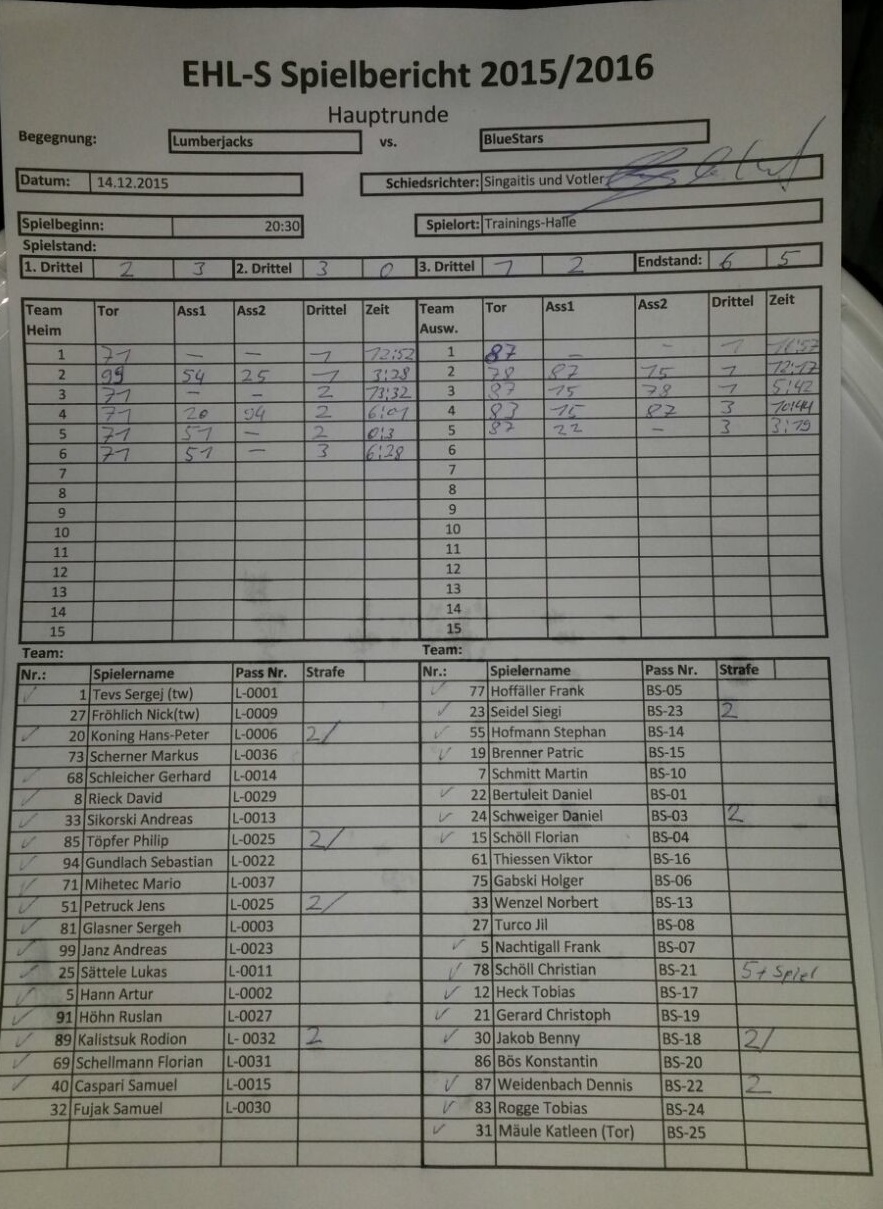 EHL-S Spielbericht 2015/2016
Hauptrunde
Begegnung: Lumberjacks vs. BlueStars
Datum: 14.12.2015 Schiedsrichter: Singaitis und Votler
Spielbeginn: 20:30 Spielort: Trainings-Halle
Spielstand:
1. Drittel 2 3 2. Drittel 3 0 3. Drittel 1 2 Endstand: 6 5
Team Heim Tor Ass1 Ass2 Drittel Zeit Team Ausw. Tor Ass1 Ass2 Drittel Zeit
1 71 — — 1 12:52 1 87 — — 1 16:57
2 99 54 25 1 3:28 2 78 87 15 1 12:17
3 71 — — 2 13:32 3 87 15 78 1 5:42
4 71 20 94 2 6:01 4 83 15 87 3 10:44
5 71 51 — 2 0:3 5 87 22 — 3 3:19
6 71 51 — 3 6:28 6
7 7
8 8
9 9
10 10
11 11
12 12
13 13
14 14
15 15
Team: Team:
Nr.: Spielername Pass Nr. Strafe Nr.: Spielername Pass Nr. Strafe
✓ 1 Tevs Sergej (tw) L-0001 ✓ 77 Hoffäller Frank BS-05
27 Fröhlich Nick(tw) L-0009 ✓ 23 Seidel Siegi BS-23 2
✓ 20 Koning Hans-Peter L-0006 2/ ✓ 55 Hofmann Stephan BS-14
73 Scherner Markus L-0036 ✓ 19 Brenner Patric BS-15
✓ 68 Schleicher Gerhard L-0014 7 Schmitt Martin BS-10
✓ 8 Rieck David L-0029 ✓ 22 Bertuleit Daniel BS-01
✓ 33 Sikorski Andreas L-0013 ✓ 24 Schweiger Daniel BS-03 2
✓ 85 Töpfer Philip L-0025 2/ ✓ 15 Schöll Florian BS-04
✓ 94 Gundlach Sebastian L-0022 61 Thiessen Viktor BS-16
✓ 71 Mihetec Mario L-0037 75 Gabski Holger BS-06
✓ 51 Petruck Jens L-0025 2/ 33 Wenzel Norbert BS-13
✓ 81 Glasner Sergeh L-0003 27 Turco Jil BS-08
✓ 99 Janz Andreas L-0023 ✓ 5 Nachtigall Frank BS-07
✓ 25 Sättele Lukas L-0011 ✓ 78 Schöll Christian BS-21 5+Spiel
✓ 5 Hann Artur L-0002 ✓ 12 Heck Tobias BS-17
✓ 91 Höhn Ruslan L-0027 ✓ 21 Gerard Christoph BS-19
✓ 89 Kalistsuk Rodion L- 0032 2 ✓ 30 Jakob Benny BS-18 2/
✓ 69 Schellmann Florian L-0031 86 Bös Konstantin BS-20
✓ 40 Caspari Samuel L-0015 ✓ 87 Weidenbach Dennis BS-22 2
32 Fujak Samuel L-0030 ✓ 83 Rogge Tobias BS-24
✓ 31 Mäule Katleen (Tor) BS-25